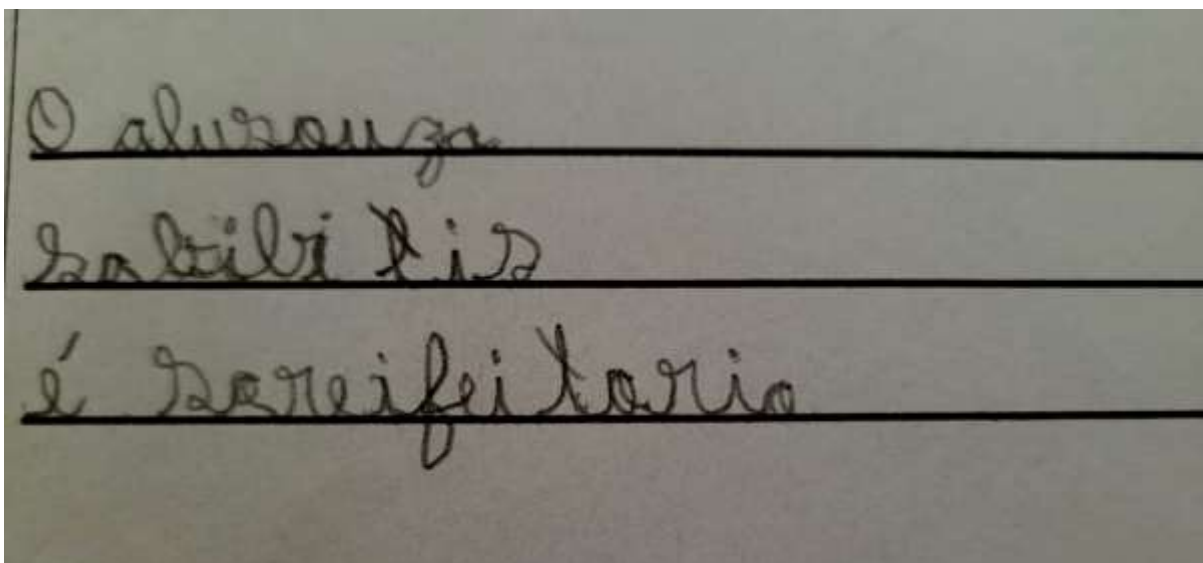 O alusouza
sabibi tis
é sareifeitorio